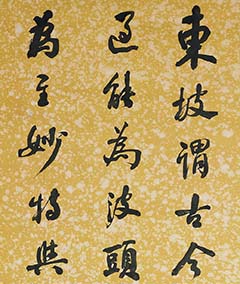 東坡謂古今
過能為波頭
為至妙特與